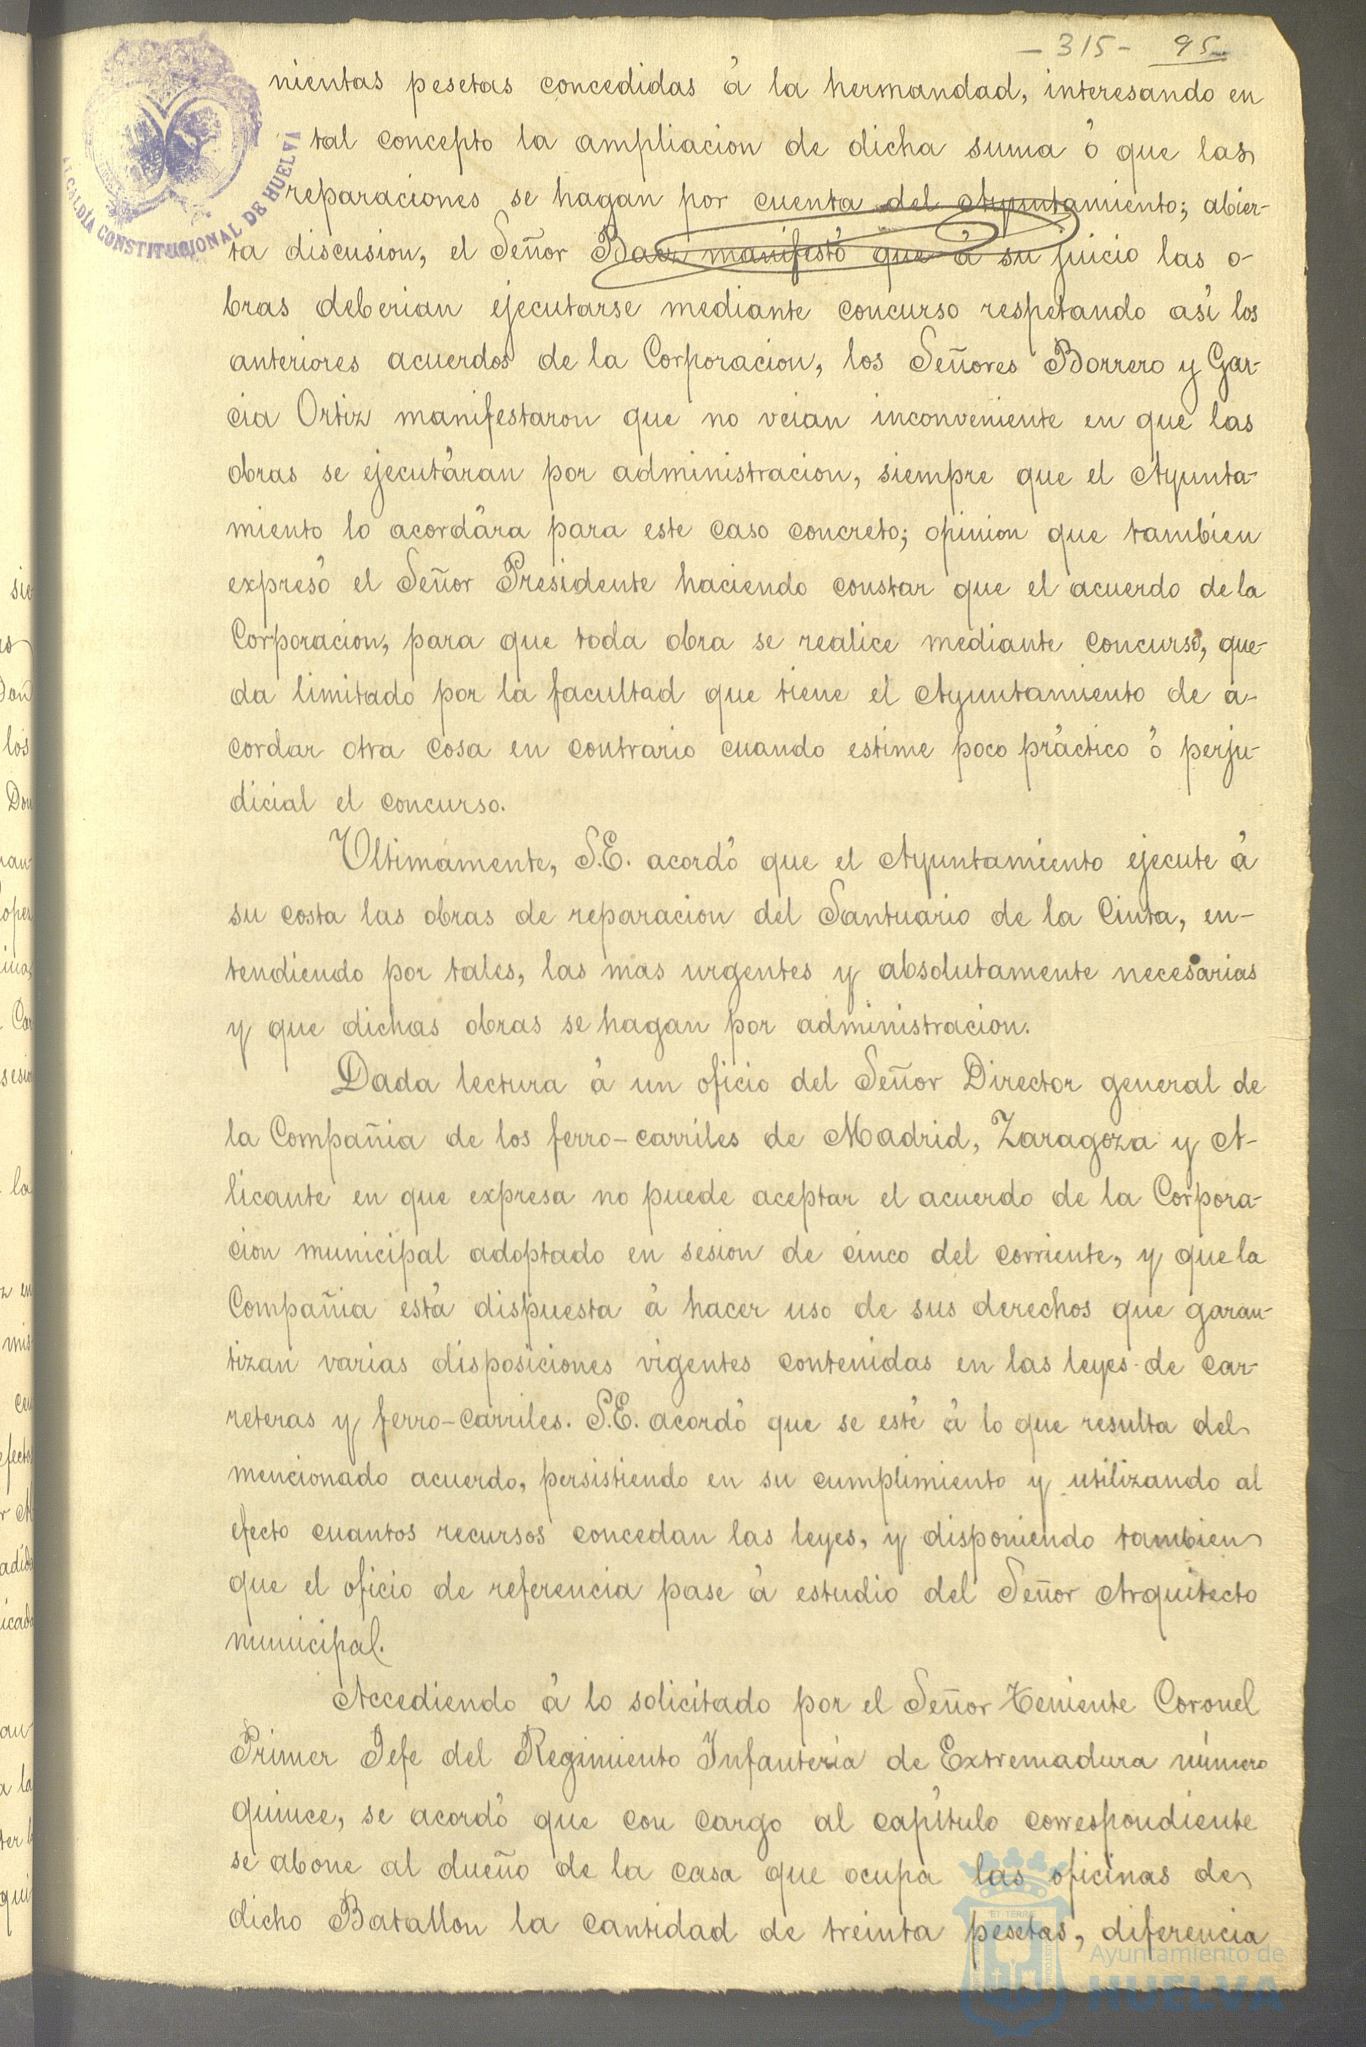 - 315 - 95
nientas pesetas concedidas á la hermandad, interesando en
tal concepto la ampliacion de dicha suma ó que las
reparaciones se hagan por cuenta del Ayuntamiento; abier-
ta discusion, el Señor Baez manifestó que á su juicio las o-
bras deberian ejecutarse mediante concurso respetando asi los
anteriores acuerdos de la Corporacion, los Señores Borrero y Gar-
cia Ortiz manifestaron que no veian inconveniente en que las
obras se ejecutáran por administracion, siempre que el Ayunta-
miento lo acordára para este caso concreto; opinion que tambien
expresó el Señor Presidente haciendo constar que el acuerdo de la
Corporacion, para que toda obra se realice mediante concurso, que-
da limitado por la facultad que tiene el Ayuntamiento de a-
cordar otra cosa en contrario cuando estime poco práctico ó perju-
dicial el concurso.
Ultimamente, S.E. acordó que el Ayuntamiento ejecute á
su costa las obras de reparacion del Santuario de la Cinta, en-
tendiendo por tales, las mas urgentes y absolutamente necesarias
y que dichas obras se hagan por administracion.
Dada lectura á un oficio del Señor Director general de
la Compañia de los ferro-carriles de Madrid, Zaragoza y A-
licante en que expresa no puede aceptar el acuerdo de la Corpora-
cion municipal adoptado en sesion de cinco del corriente, y que la
Compañia está dispuesta á hacer uso de sus derechos que garan-
tizan varias disposiciones vigentes contenidas en las leyes de car-
reteras y ferro-carriles. S.E. acordó que se esté á lo que resulta del
mencionado acuerdo, persistiendo en su cumplimiento y utilizando al
efecto cuantos recursos concedan las leyes, y disponiendo tambien
que el oficio de referencia pase á estudio del Señor Arquitecto
municipal.
Accediendo á lo solicitado por el Señor Teniente Coronel
Primer Jefe del Regimiento Infantería de Extremadura número
quince, se acordó que con cargo al capítulo correspondiente
se abone al dueño de la casa que ocupa las oficinas de
dicho Batallon la cantidad de treinta pesetas, diferencia
ALCALDÍA CONSTITUCIONAL DE HUELVA
Ayuntamiento de
HUELVA